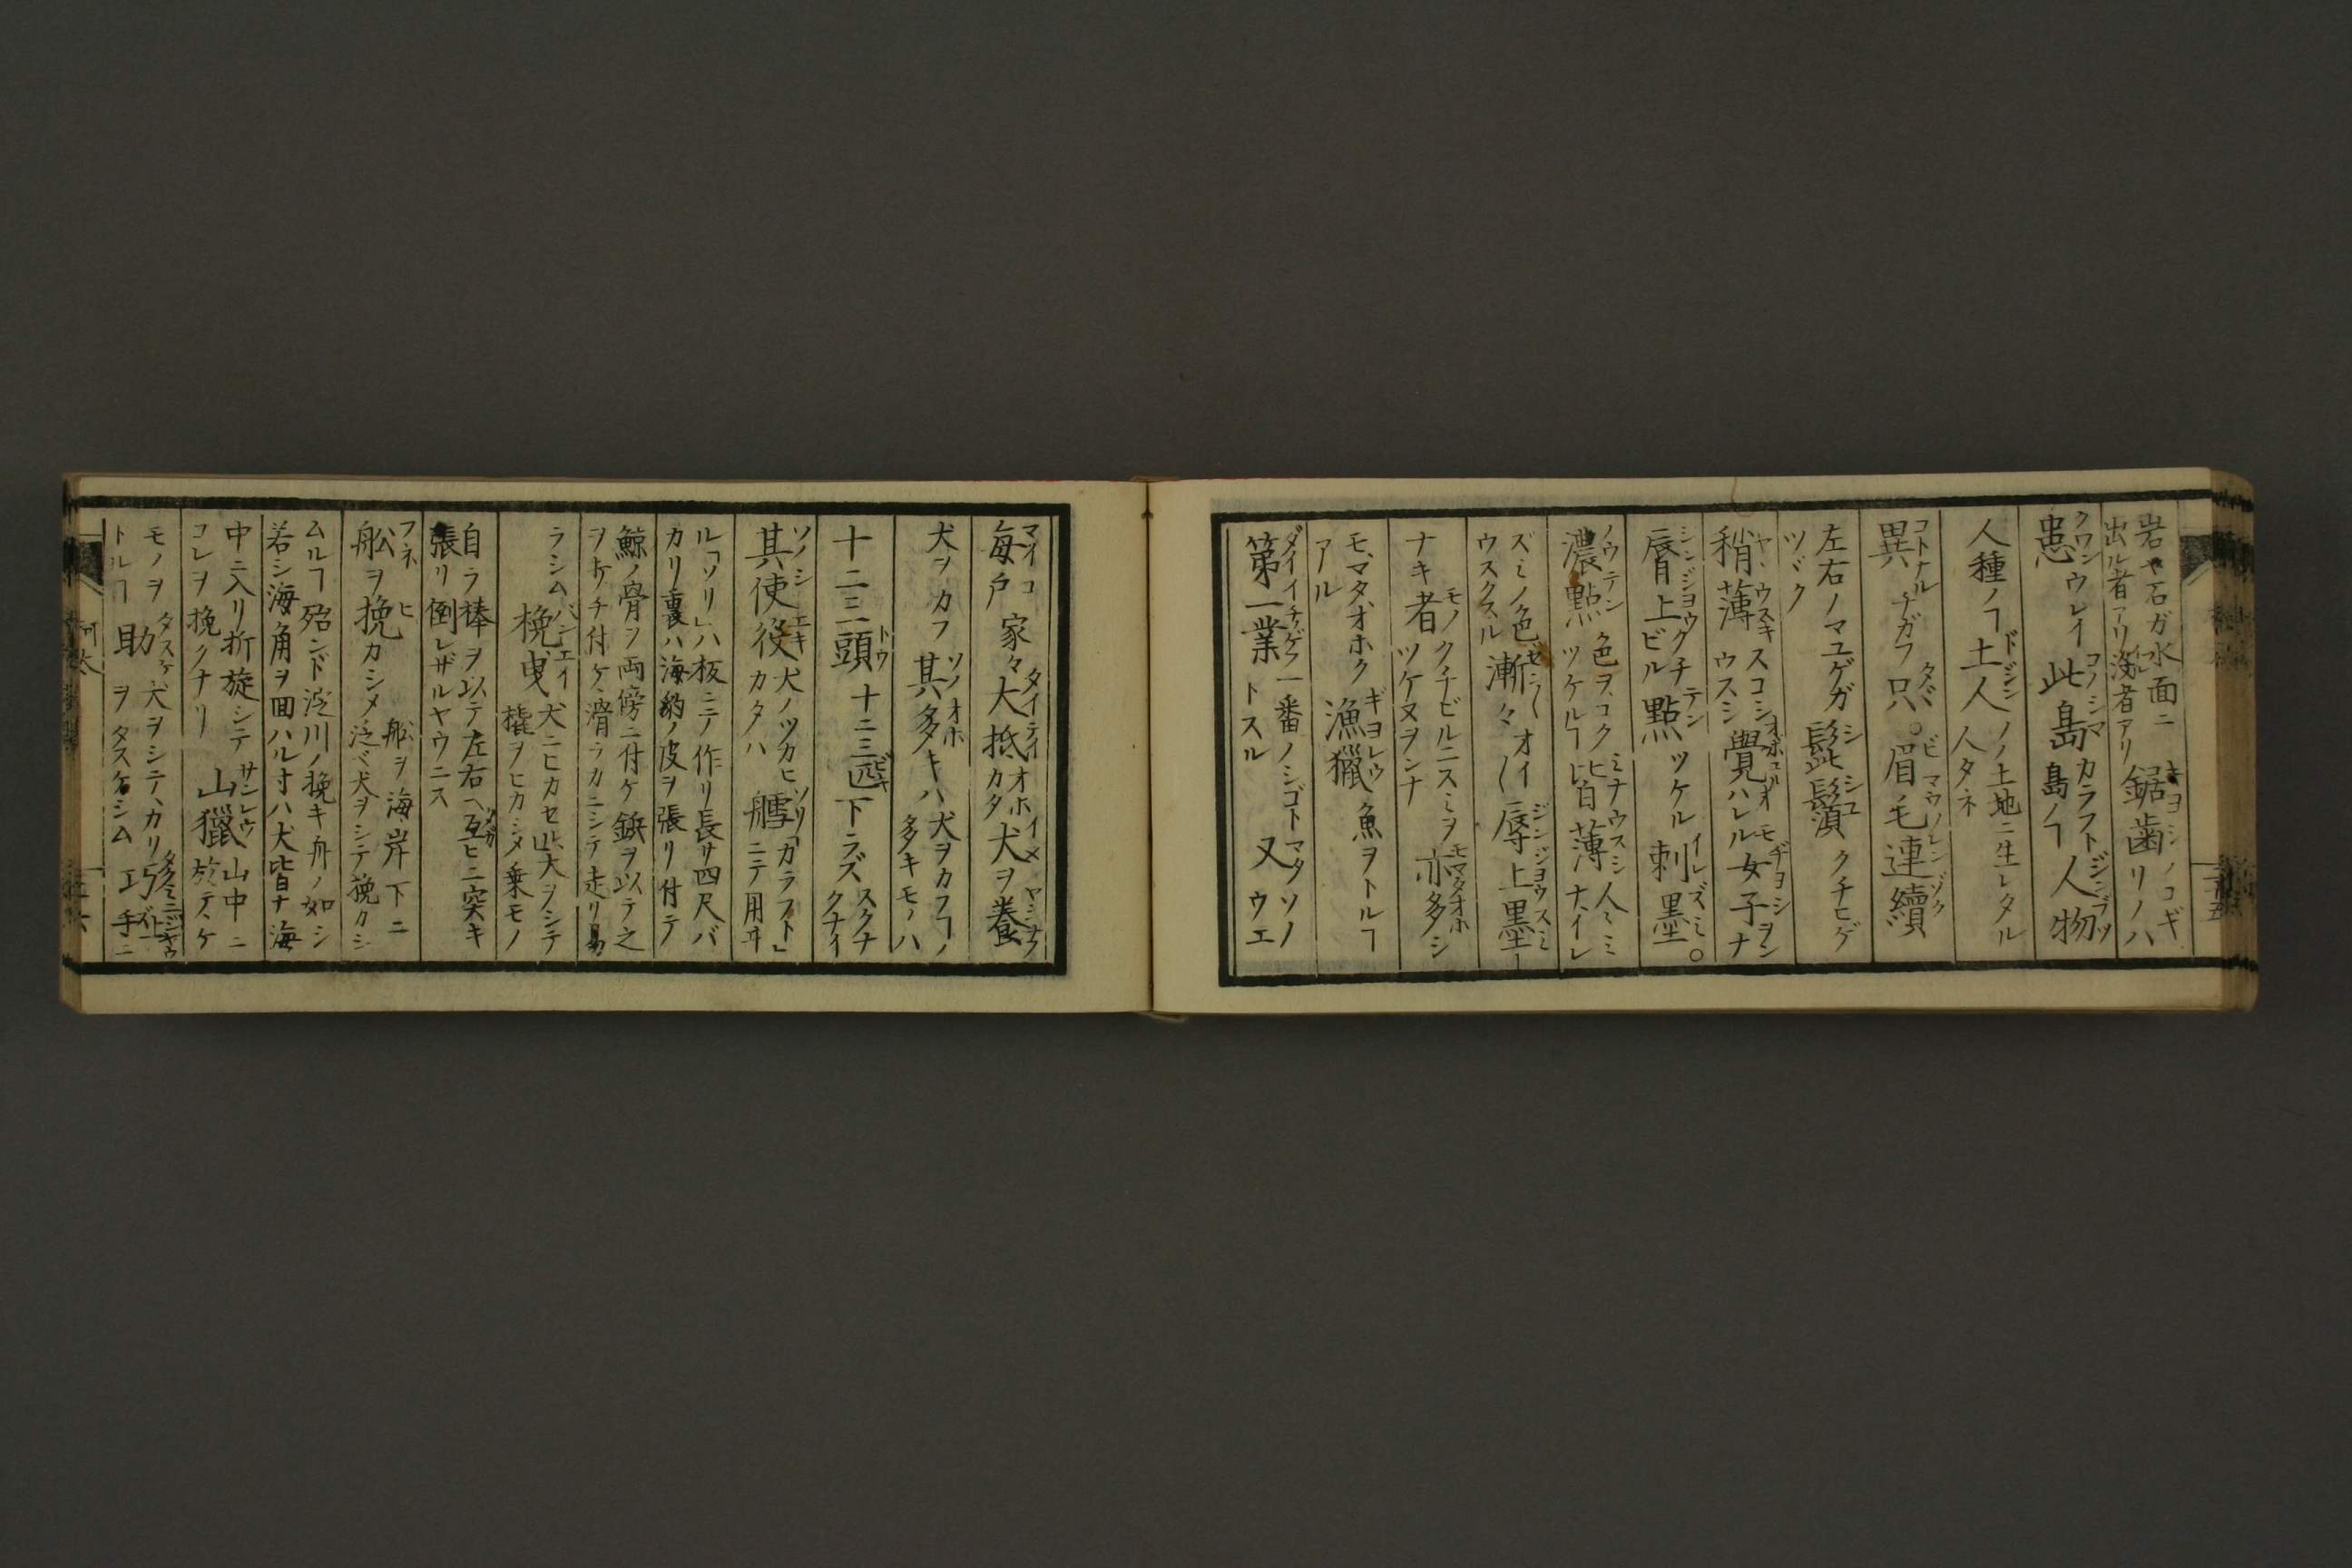 岩や石ガ水面ニ
出ル者アリ浅者アリ
鋸歯
キヨシノコギ
リノハ
患
クワン
ウレイ
此島
コノシマ
カラフト
島ノヿ
人物
ジンブツ
人種ノヿ
土人
ドジン
ノノ土地ニ生レタル
人タネ
異
コトナル
チガフ
只
タヾ
眉毛連續
ビマウノレンゾク
左右ノマユゲガ
ツヾク
髭鬚
シシユ
クチヒゲ
稍薄
ヤヽウスキ
スコシ
ウスシ
覺
オボユル
オモ
ハレル
女子
ヂヨシ
ヲン
ナ
脣上
シンジヨウ
クチ
ビル
點
テン
ツケル
刺墨
イレズミ
濃點
ノウテン
色ヲコク
ツケルヿ
皆薄
ミナウスシ
人ミミ
ナイレ
ズミノ色
ウスクスル
漸々
ゼン〳〵
オイ
〳〵
脣上墨
ジンジヨウスミ
ナキ者
モノ
クチビルニスミヲ
ツケヌヲンナ
亦多シ
モマタオホ
モ、マタ、オホク
アル
漁獵
ギヨレウ
魚ヲトルヿ
第一業
ダイイチゲフ
一番ノシゴト
トスル
又
マタソノ
ウエ
毎戸
マイコ
家々
大抵
タイテイ
オホ
カタ
犬ヲ養
イヌ ヤシナフ
犬ヲカフ
其多キハ
ソノオホ
犬ヲカフヿノ
多キモノハ
十二三頭
トウ
十二三匹
ビキ
下ラズ
スクナ
クナイ
其使役
ソノシエキ
犬ノツカヒ
カタハ
艝
ソリ
「カラフト」
ニテ用ヰ
ル「ソリ」ハ板ニテ作リ長サ四尺バ
カリ裏ハ海豹ノ皮ヲ張リ付テ
鯨ノ骨ヲ両傍ニ付ケ鋲ヲ以テ之
ヲ打チ付ケ滑ラカニシテ走リ易
ラシム
挽曳
バンエイ
犬ニヒカセル
犬ヲシテ
橇ヲヒカシメ乗モノ
自ラ棒ヲ以テ左右ヘ互ヒニ突キ
張リ倒レザルヤウニス
舩ヲ挽
フネ ヒ
カシメ
舩ヲ海岸下ニ
泛べ犬ヲシテ挽カシ
ムルヿ殆ンド泛川ノ挽キ舟ノ如シ
若シ海角ヲ回ハル寸ハ犬皆ナ海
中ニ入リ折旋シテ
コレヲ挽クナリ
山獵
サンレウ
山中ニ
於テ、ケ
モノヲ
トルヿ
助
タスケ
犬ヲシテ、カリ
ヲタスケシム
巧
手ニ